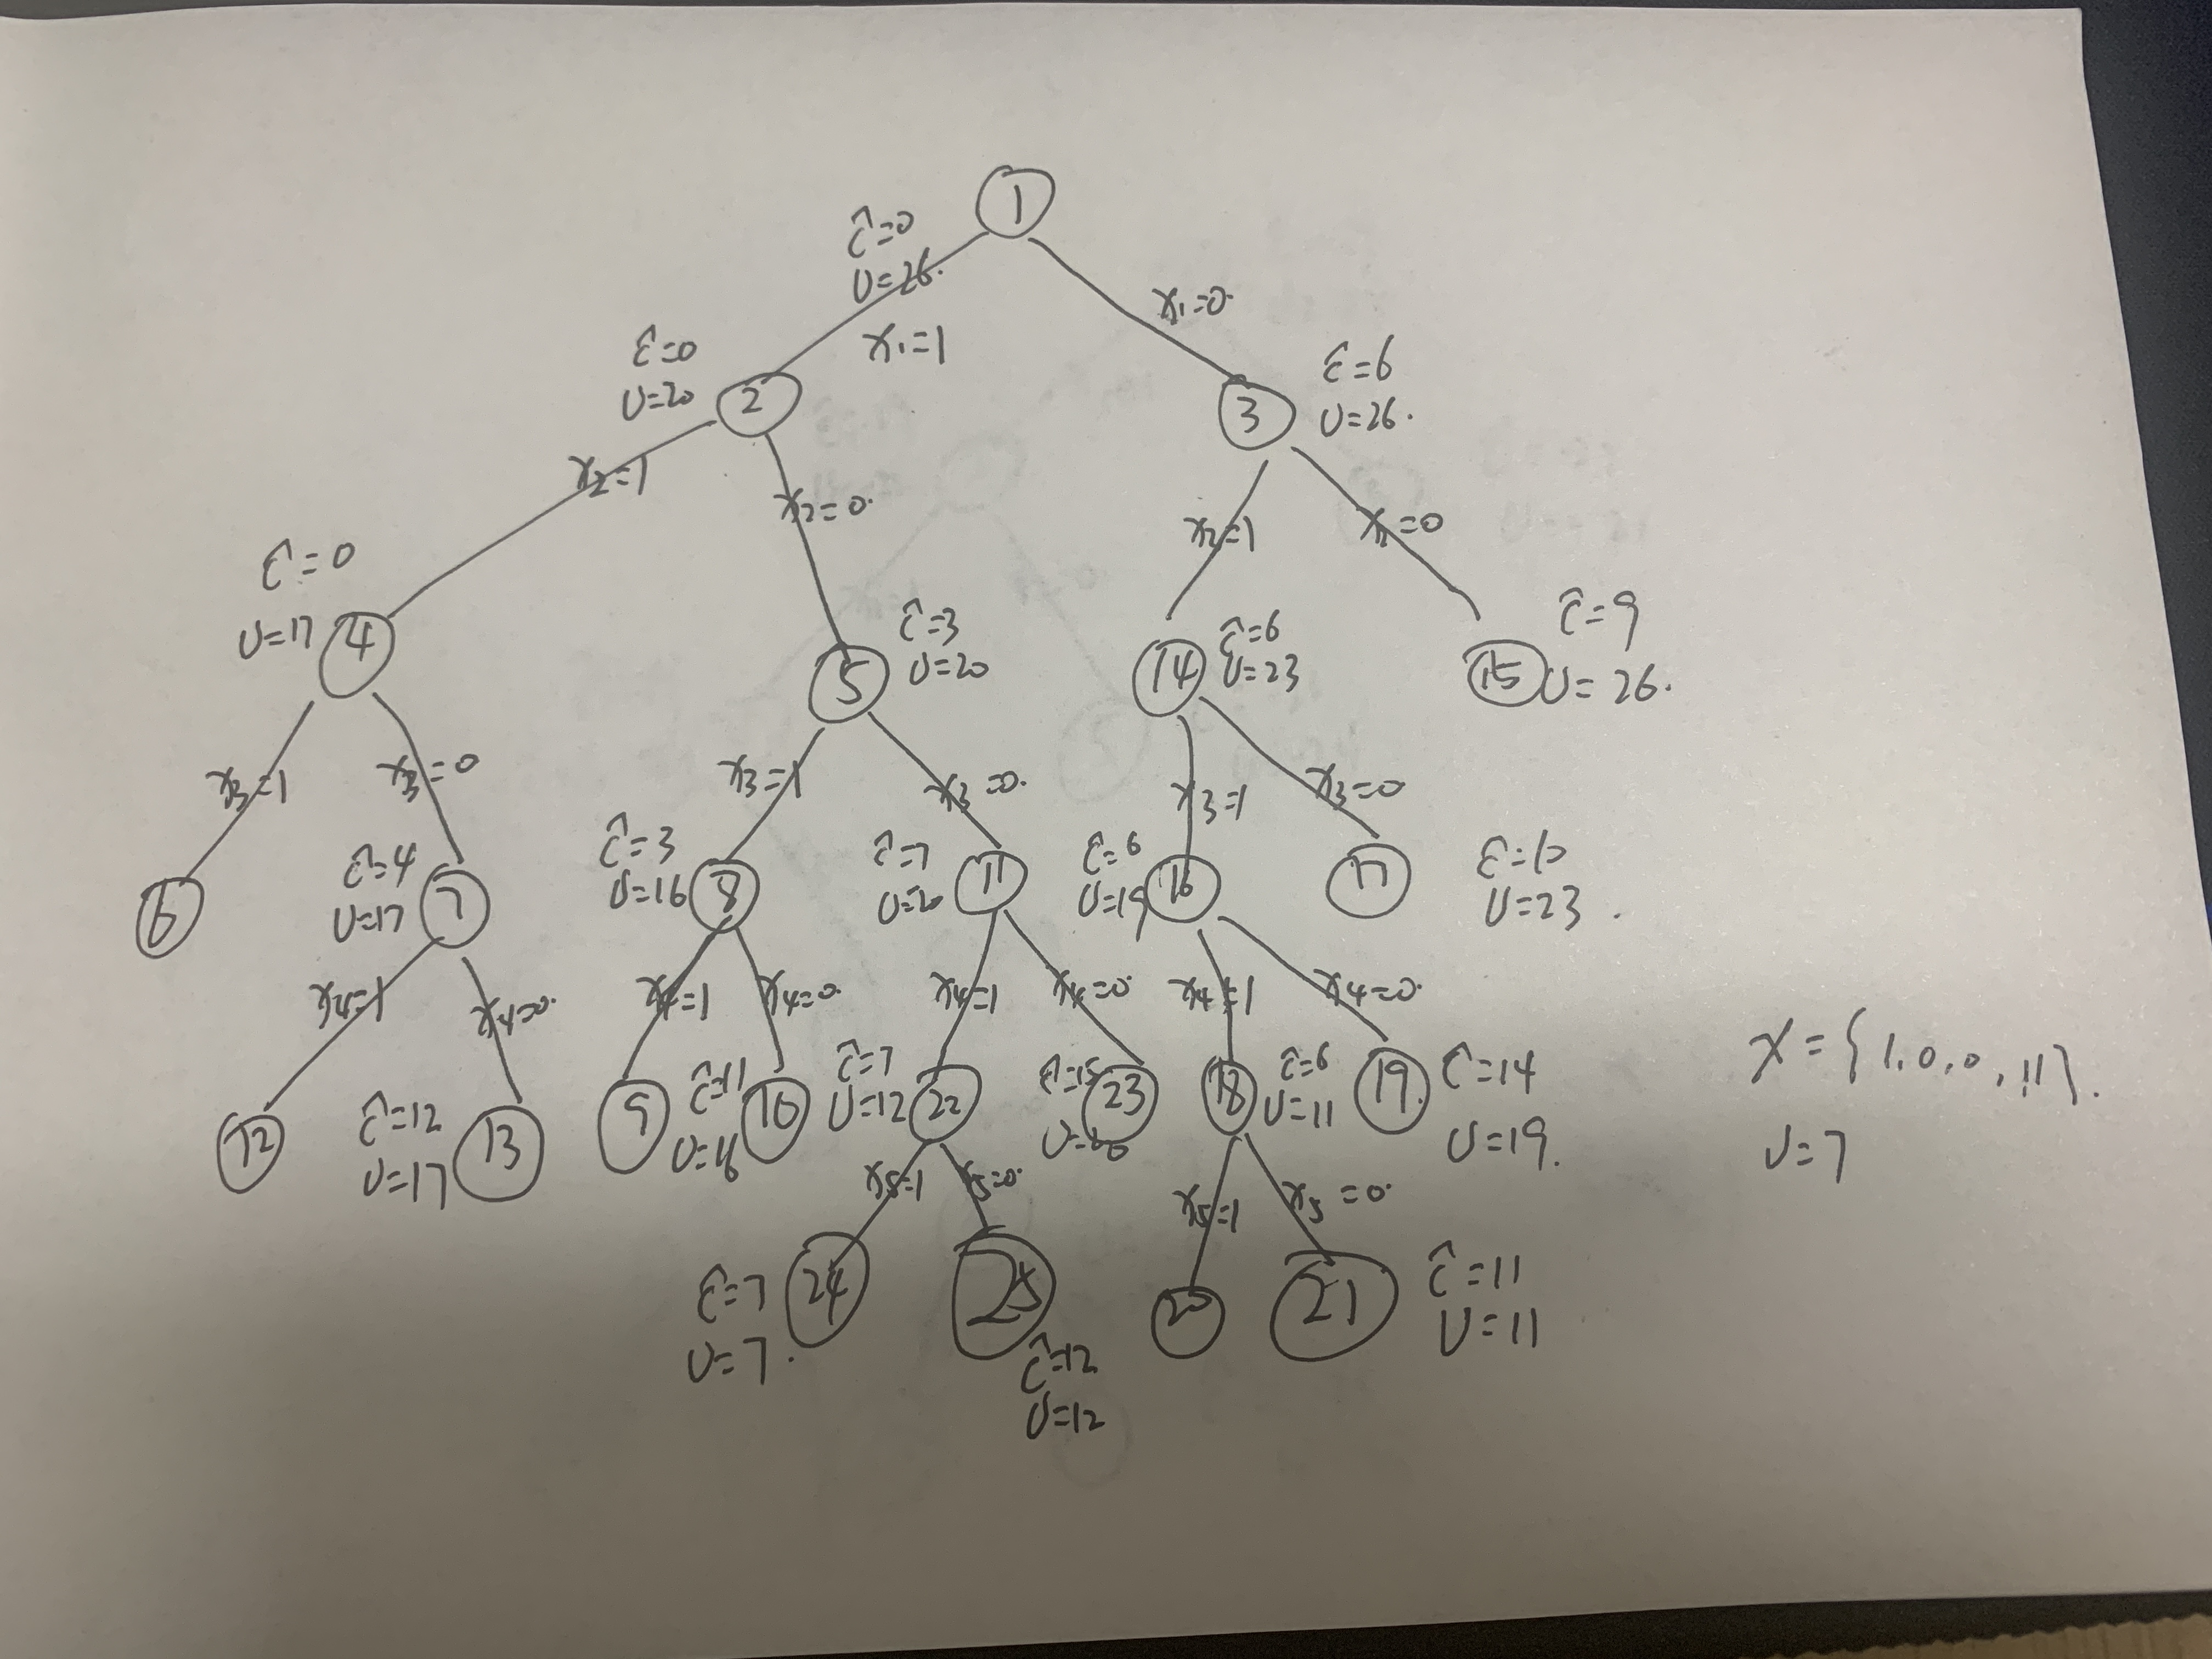 1
ĉ=0
U=26.
x1=1
x1=0.
2
ĉ=0
U=20
3
ĉ=6
U=26.
x2=1
x2=0.
x2=1
x2=0
4
ĉ=0
U=17
5
ĉ=3
U=20
14
ĉ=6
U=23
15
ĉ=9
U=26.
x3=1
x3=0
x3=1
x3=0.
x3=1
x3=0
7
ĉ=4
U=17
8
ĉ=3
U=16
11
ĉ=7
U=20
16
ĉ=6
U=19
17
ĉ=10
U=23.
x4=1
x4=0.
x4=1
x4=0.
x4=1
x4=0.
x4=1
x4=0.
12
13
ĉ=12
U=17
ĉ=11
U=16
10
22
ĉ=7
U=12
23
ĉ=15
U=20
18
ĉ=6
U=11
19.
ĉ=14
U=19.
x5=1
x5=0.
x5=1
x5=0.
24
ĉ=7
U=7.
25
ĉ=12
U=12
20
21
ĉ=11
U=11
X={1,0,0,1,1}.
U=7